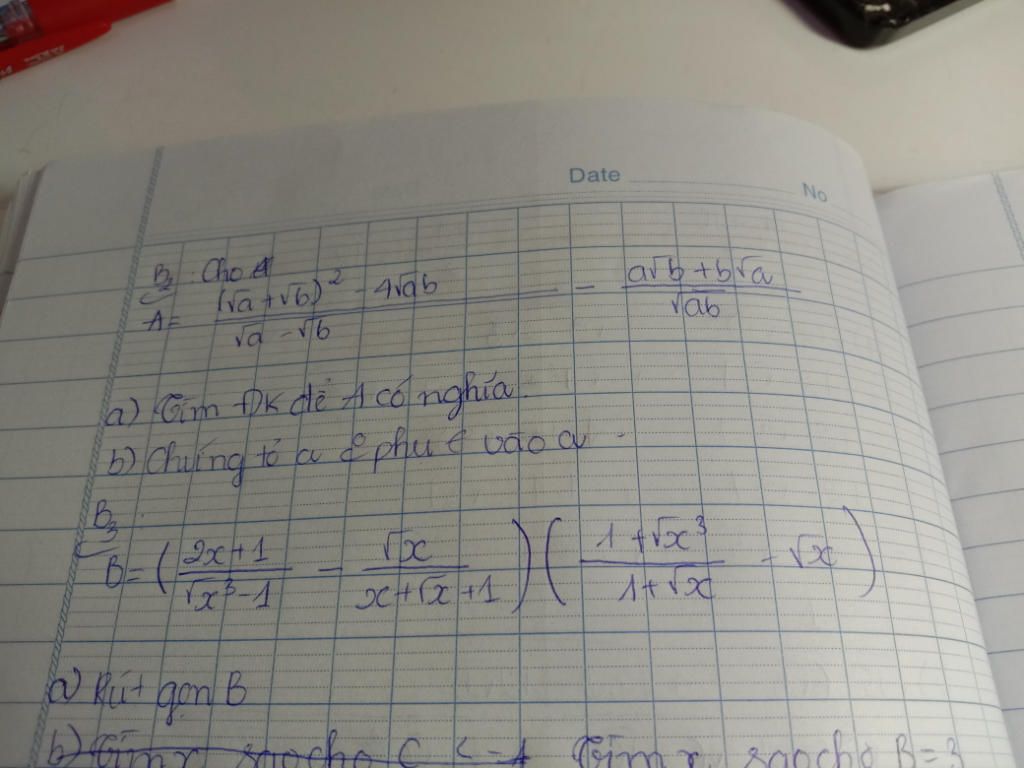 Date No
B2: Cho A
A = \frac{(√a + √b)² - 4√ab}{√a - √b} - \frac{a√b + b√a}{√ab}
a) Tìm ĐK để A có nghĩa.
b) Chứng tỏ a phụ vào a.
B3:
B = (\frac{2x+1}{√x³ - 1} - \frac{√x}{x + √x + 1})(\frac{1 + √x³}{1 + √x} - √x)
a) Rút gọn B
b) Tìm x sao cho C < -1 Tìm x sao cho B = 3